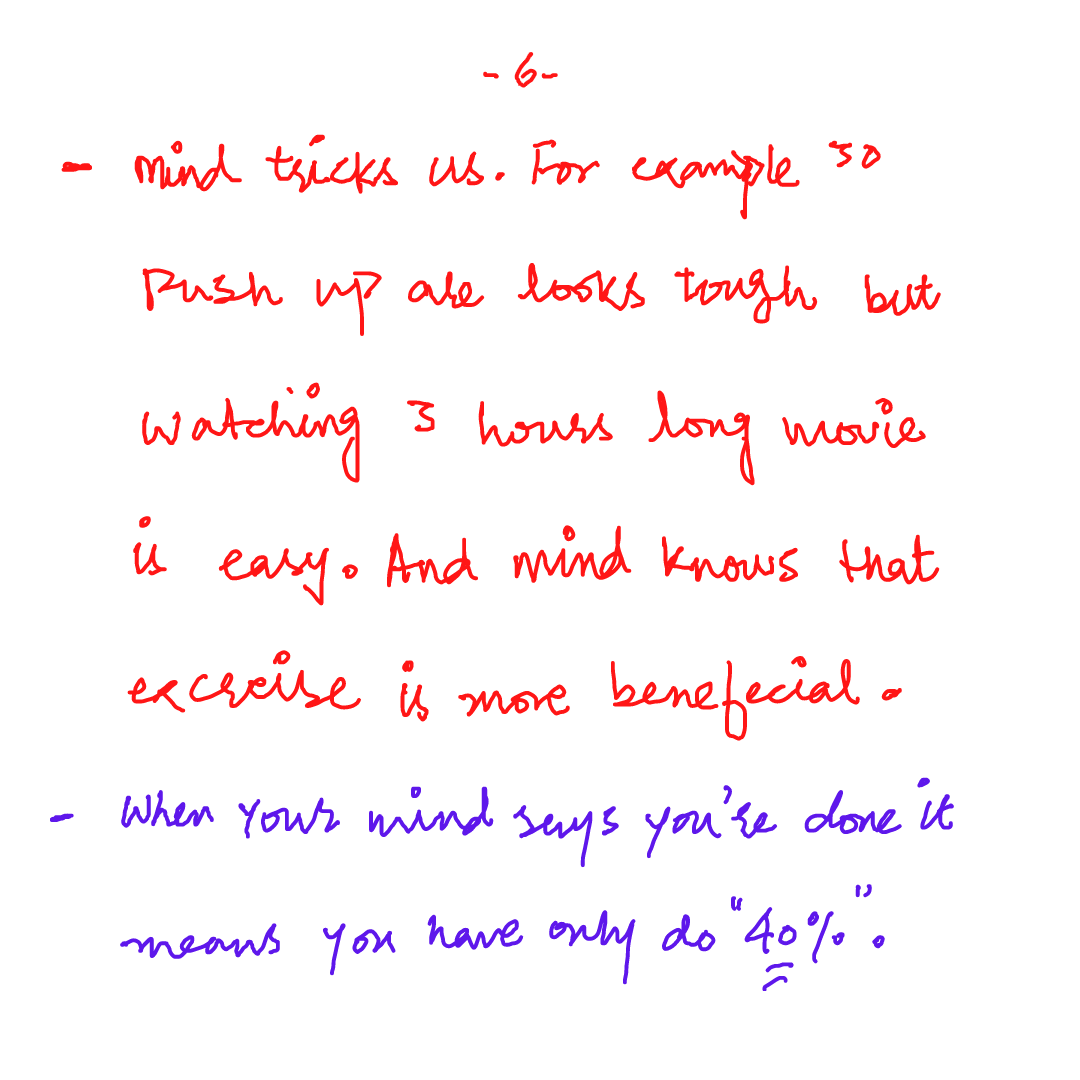 - 6 -
- Mind tricks us. For example 50
Push up are looks tough but
watching 3 hours long movie
is easy. And mind knows that
excreise is more benefecial.
- When your mind says you're done it
means you have only do "40%".